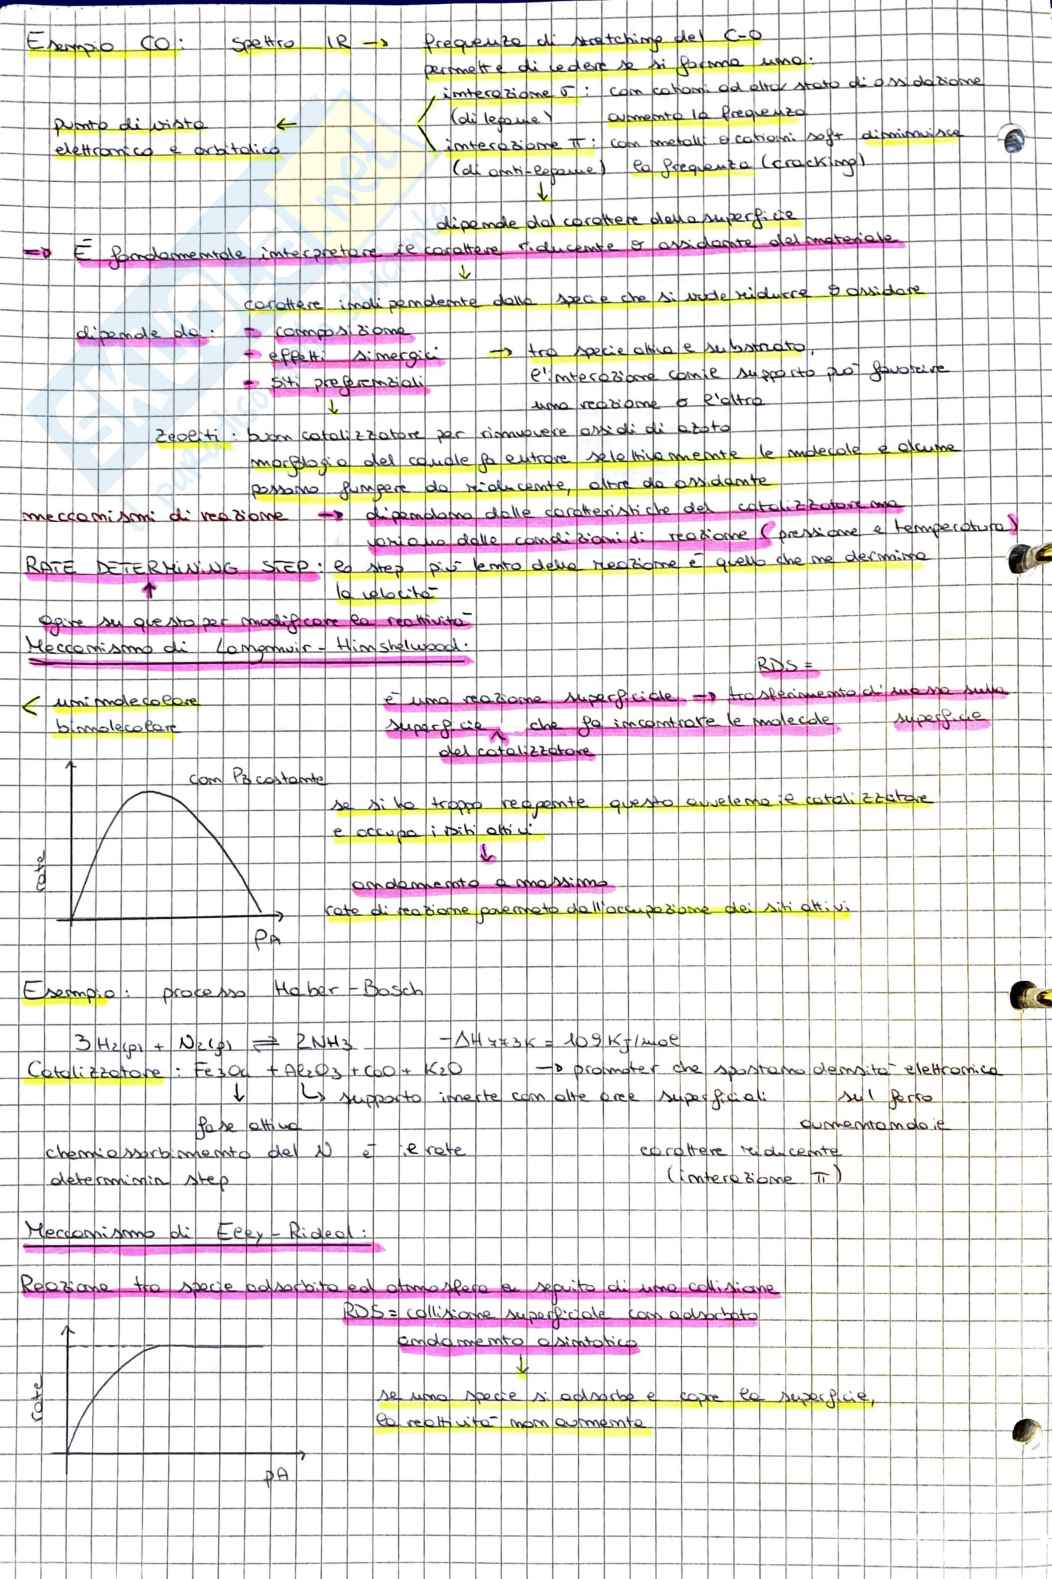 Esempio CO: spettro IR → frequenza di stretching del C-O
permette di vedere se si forma una:
interazione σ: con cationi ad alto stato di ossidazione
(di legame) aumenta la frequenza
punto di vista ←
elettronico e orbitalico
interazione π: con metalli o cationi soft diminuisce
(di anti-legame) la frequenza (cracking)
↓
dipende dal carattere della superficie
⇒ È fondamentale interpretare il carattere riducente o ossidante del materiale
↓
carattere indipendente dalla specie che si vuole ridurre o ossidare
dipende da: - composizione
- effetti sinergici → tra specie attiva e substrato,
- siti preferenziali l'interazione con il supporto può favorire
↓ una reazione o l'altra
Zeoliti: buon catalizzatore per rimuovere ossidi di azoto
morfologia del canale fa entrare selettivamente le molecole e alcune
possono fungere da riducente, altre da ossidante
meccanismi di reazione → dipendono dalle caratteristiche del catalizzatore ma
variano dalle condizioni di reazione (pressione e temperatura)
RATE DETERMINING STEP: lo step più lento della reazione è quello che ne dermina
↑ la velocità
agire su questo per modificare la reattività
Meccanismo di Langmuir-Hinshelwood:
RDS =
< unimolecolare
bimolecolare
è una reazione superficiale → trasferimento di massa sulla
superficie che fa incontrare le molecole superficie
del catalizzatore
con PB costante
rate
PA
se si ha troppo reagente questo avvelena il catalizzatore
e occupa i siti attivi
↓
andamento a massimo
rate di reazione governato dall'occupazione dei siti attivi
Esempio: processo Haber-Bosch
3H2(g) + N2(g) ⇌ 2NH3 -ΔH 773K = 109 KJ/mol
Catalizzatore: Fe3O4 + Al2O3 + CaO + K2O → promoter che spostano densità elettronica
↓ ↳ supporto inerte con alte aree superficiali sul ferro
fase attiva aumentando il
chemiassorbimento del N è il rate carattere riducente
determinin step (interazione π)
Meccanismo di Eley-Rideal:
Reazione tra specie adsorbita ed atmosfera a seguito di una collisione
RDS = collisione superficiale con adsorbato
andamento asintotico
↓
rate
pA
se una specie si adsorbe e copre la superficie,
la reattività non aumenta